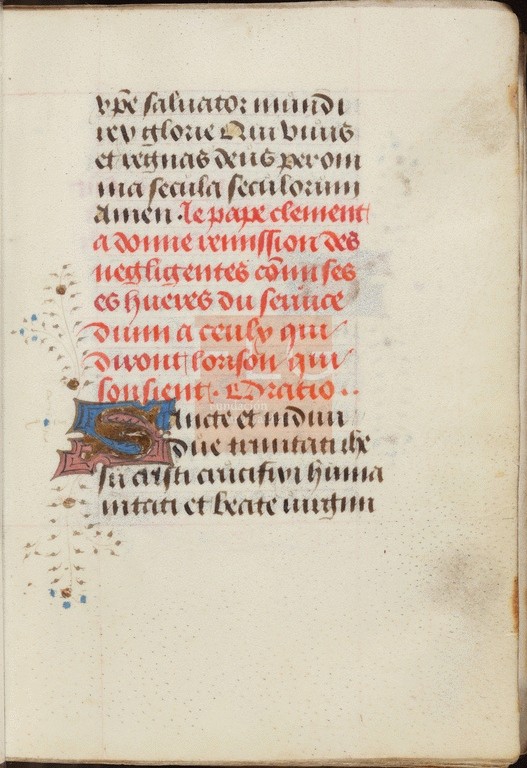 xp̄e saluator mundi
rex glorie Qui viuis
et regnas deus per om
nia secula seculorum
amen. le pape clement
a donne remission des
negligentes cōmises
es hueres du seruice
diuin a ceulx qui
diront lorison qui
sensient. Oratio..
Sancte et indiui
due trinitati ihe
su cristi crucifixi huma
nitati et beate uirgini